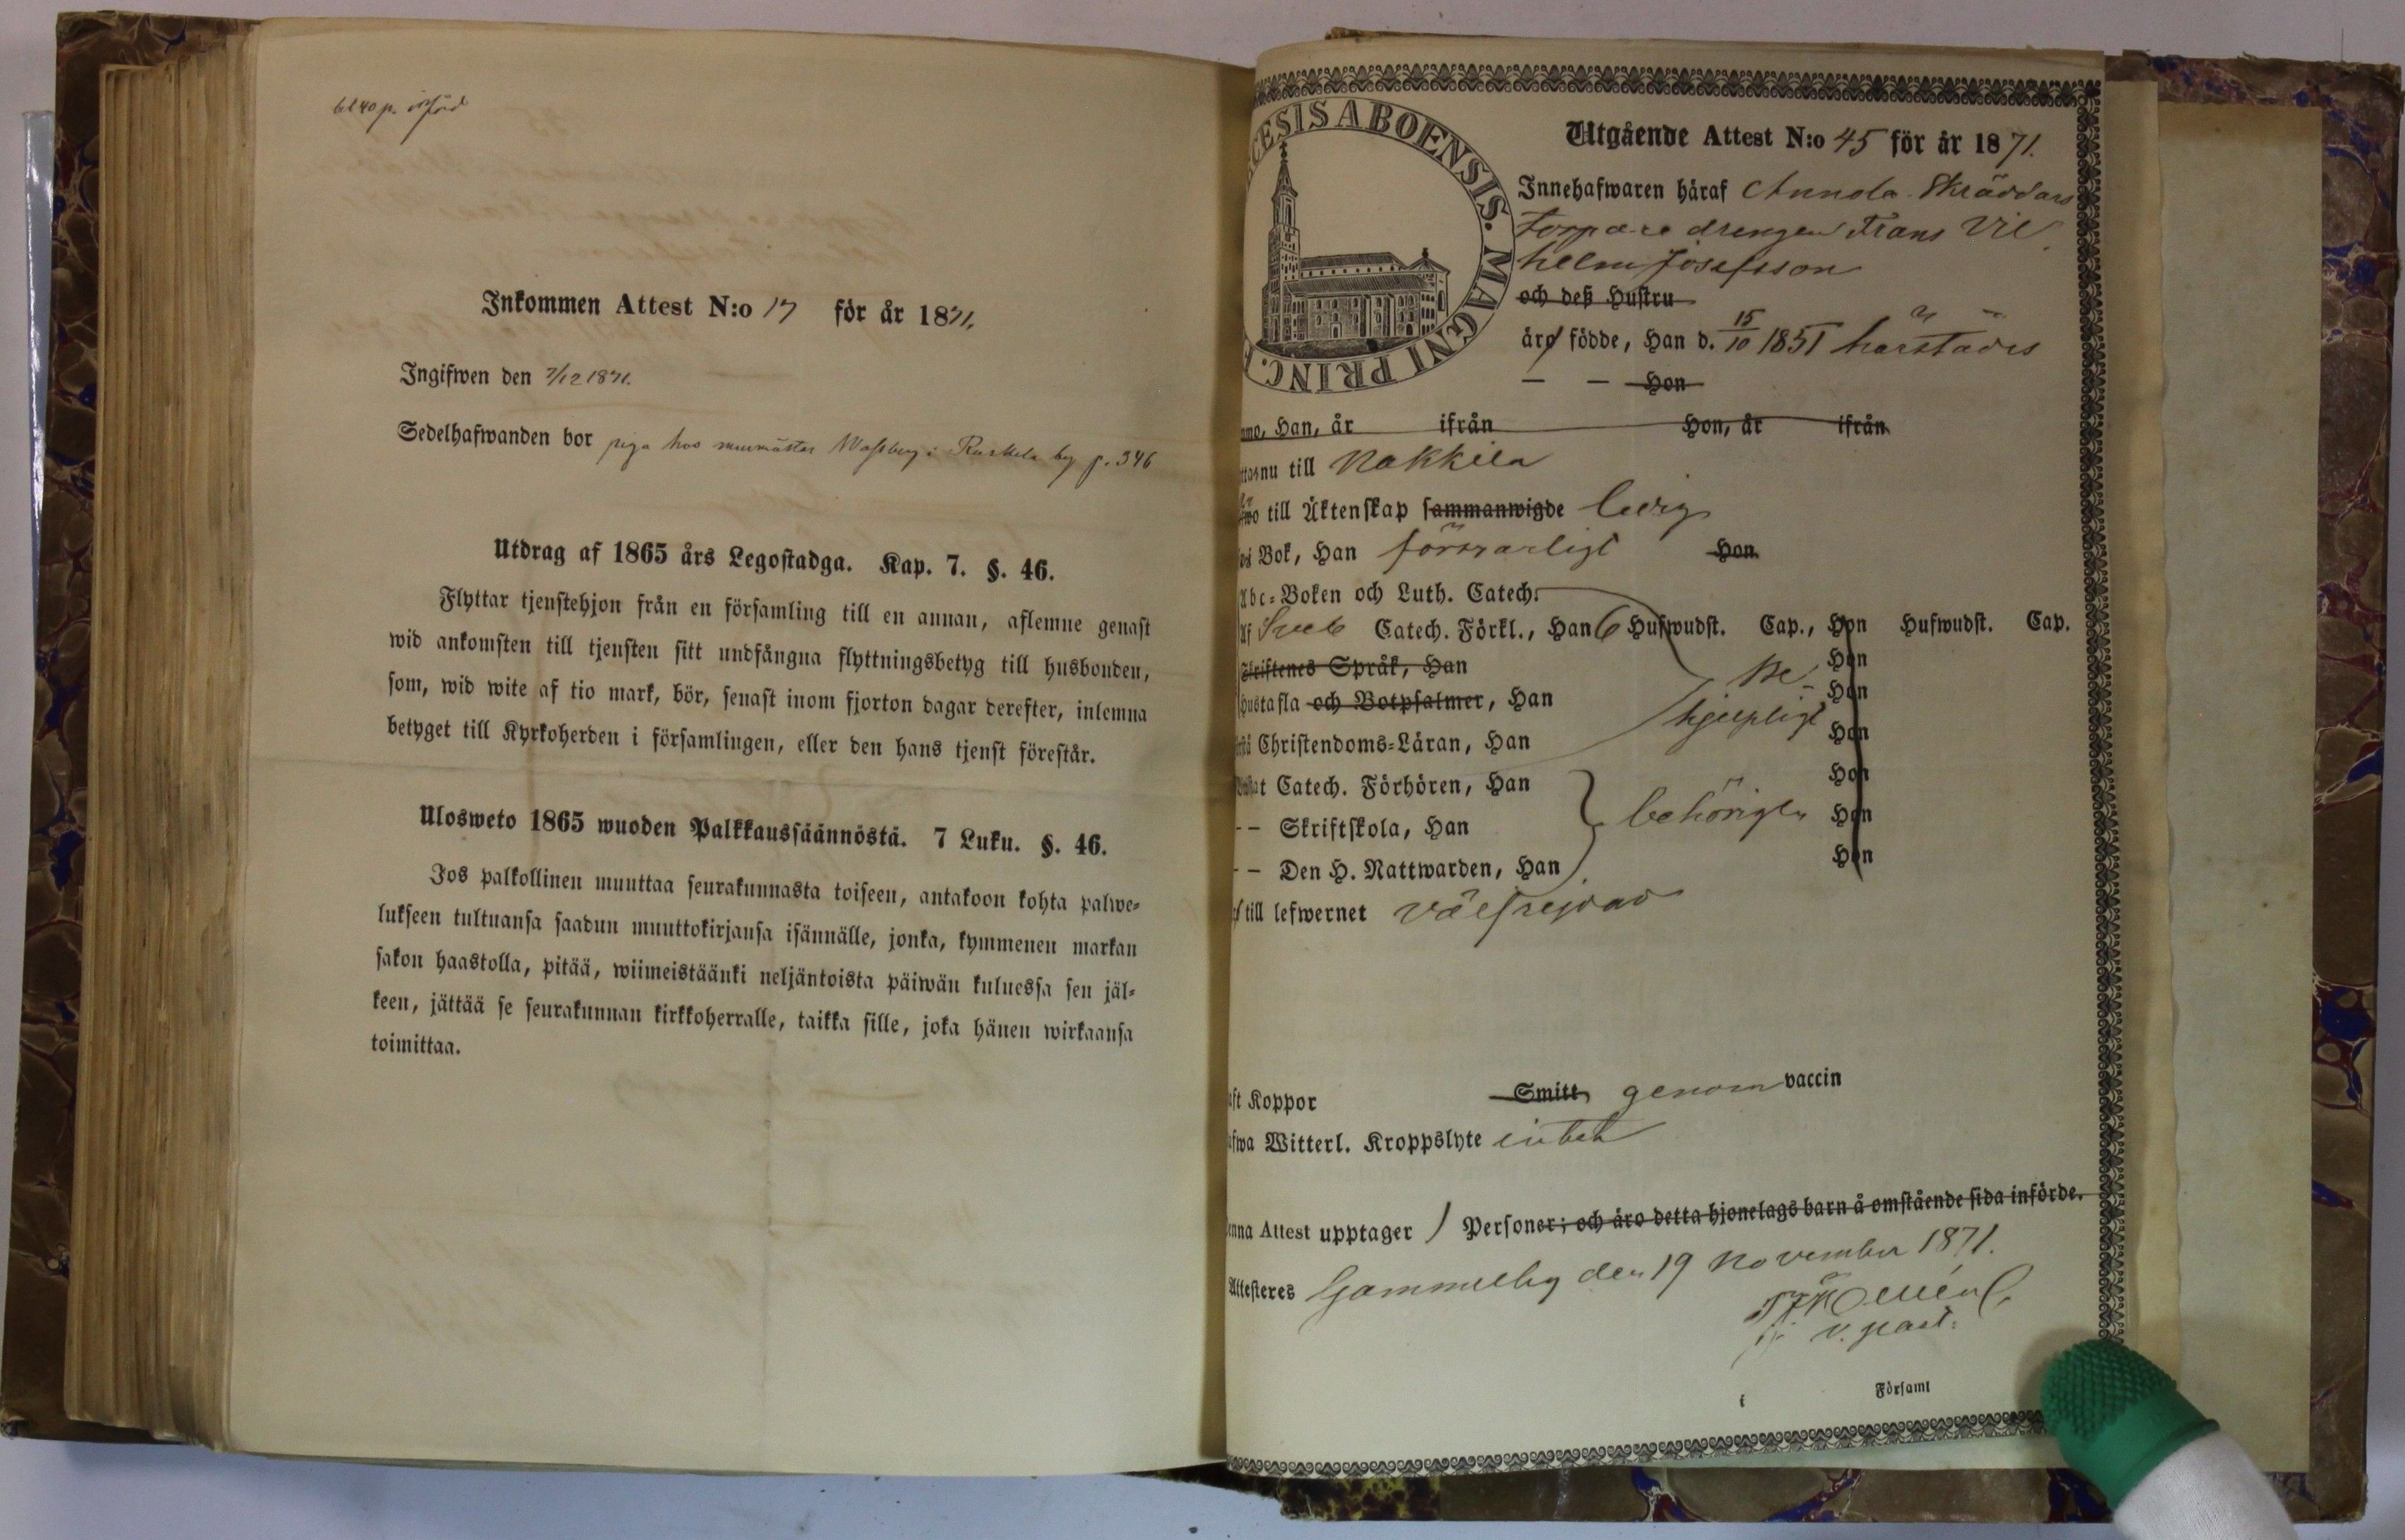 införd
Inkommen Attest N:o 17 för år 1871.
Ingifwen den 7/12 1871.
Sedelhafwanden bor piga hos murmästar Wahlberg i Ruskela by p. 346
Utdrag af 1865 års Legostadga. Kap. 7. §. 46.
Flyttar tjenstehjon från en församling till en annan, aflemne genast
wid ankomsten till tjensten sitt undfångna flyttningsbetyg till husbonden,
som, wid wite af tio mark, bör, senast inom fjorton dagar derefter, inlemna
betyget till Kyrkoherden i församlingen, eller den hans tjenst förestår.
Ulosweto 1865 wuoden Palkkaussäännöstä. 7 Luku. §. 46.
Jos palkollinen muuttaa seurakunnasta toiseen, antakoon kohta palwe-
lukseen tultuansa saadun muuttokirjansa isännälle, jonka, kymmenen markan
sakon haastolla, pitää, wiimeistäänki neljäntoista päiwän kuluessa sen jäl-
keen, jättää se seurakunnan kirkkoherralle, taikka sille, joka hänen wirkaansa
toimittaa.
CESIS ABOENSIS. MAGNI PRINC. F
Utgående Attest N:o 45 för år 1871.
Innehafwaren häraf Annola Skräddars
torpare drengen Frans Vil
helm Josefsson
och deß Hustru
äro födde, Han d. 15/10 1851 härstädes
— — Hon
mo, Han, år ifrån Hon, år ifrån
ttas nu till Nakkila
wo till Äktenskap sammanwigde ledig
Bok, Han försvarligt Hon
Abc-Boken och Luth. Catech.
Af Sveb Catech. Förkl., Han 6 Hufwudst. Cap., Hon Hufwudst. Cap.
Skriftenes Språk, Han Hon
Hustafla och Botpsalmer, Han be- Hon
Christendoms-Läran, Han hjelpligt Hon
at Catech. Förhören, Han Hon
-- Skriftskola, Han behörigen Hon
-- Den H. Nattwarden, Han Hon
till lefwernet välfrejdad
ft Koppor Smitt genom vaccin
fwa Witterl. Kroppslyte intet
enna Attest upptager 1 Personer; och äro detta hjonelags barn å omstående sida införde.
Attesteres Gammelby den 19 November 1871.
v. past:
i Församl